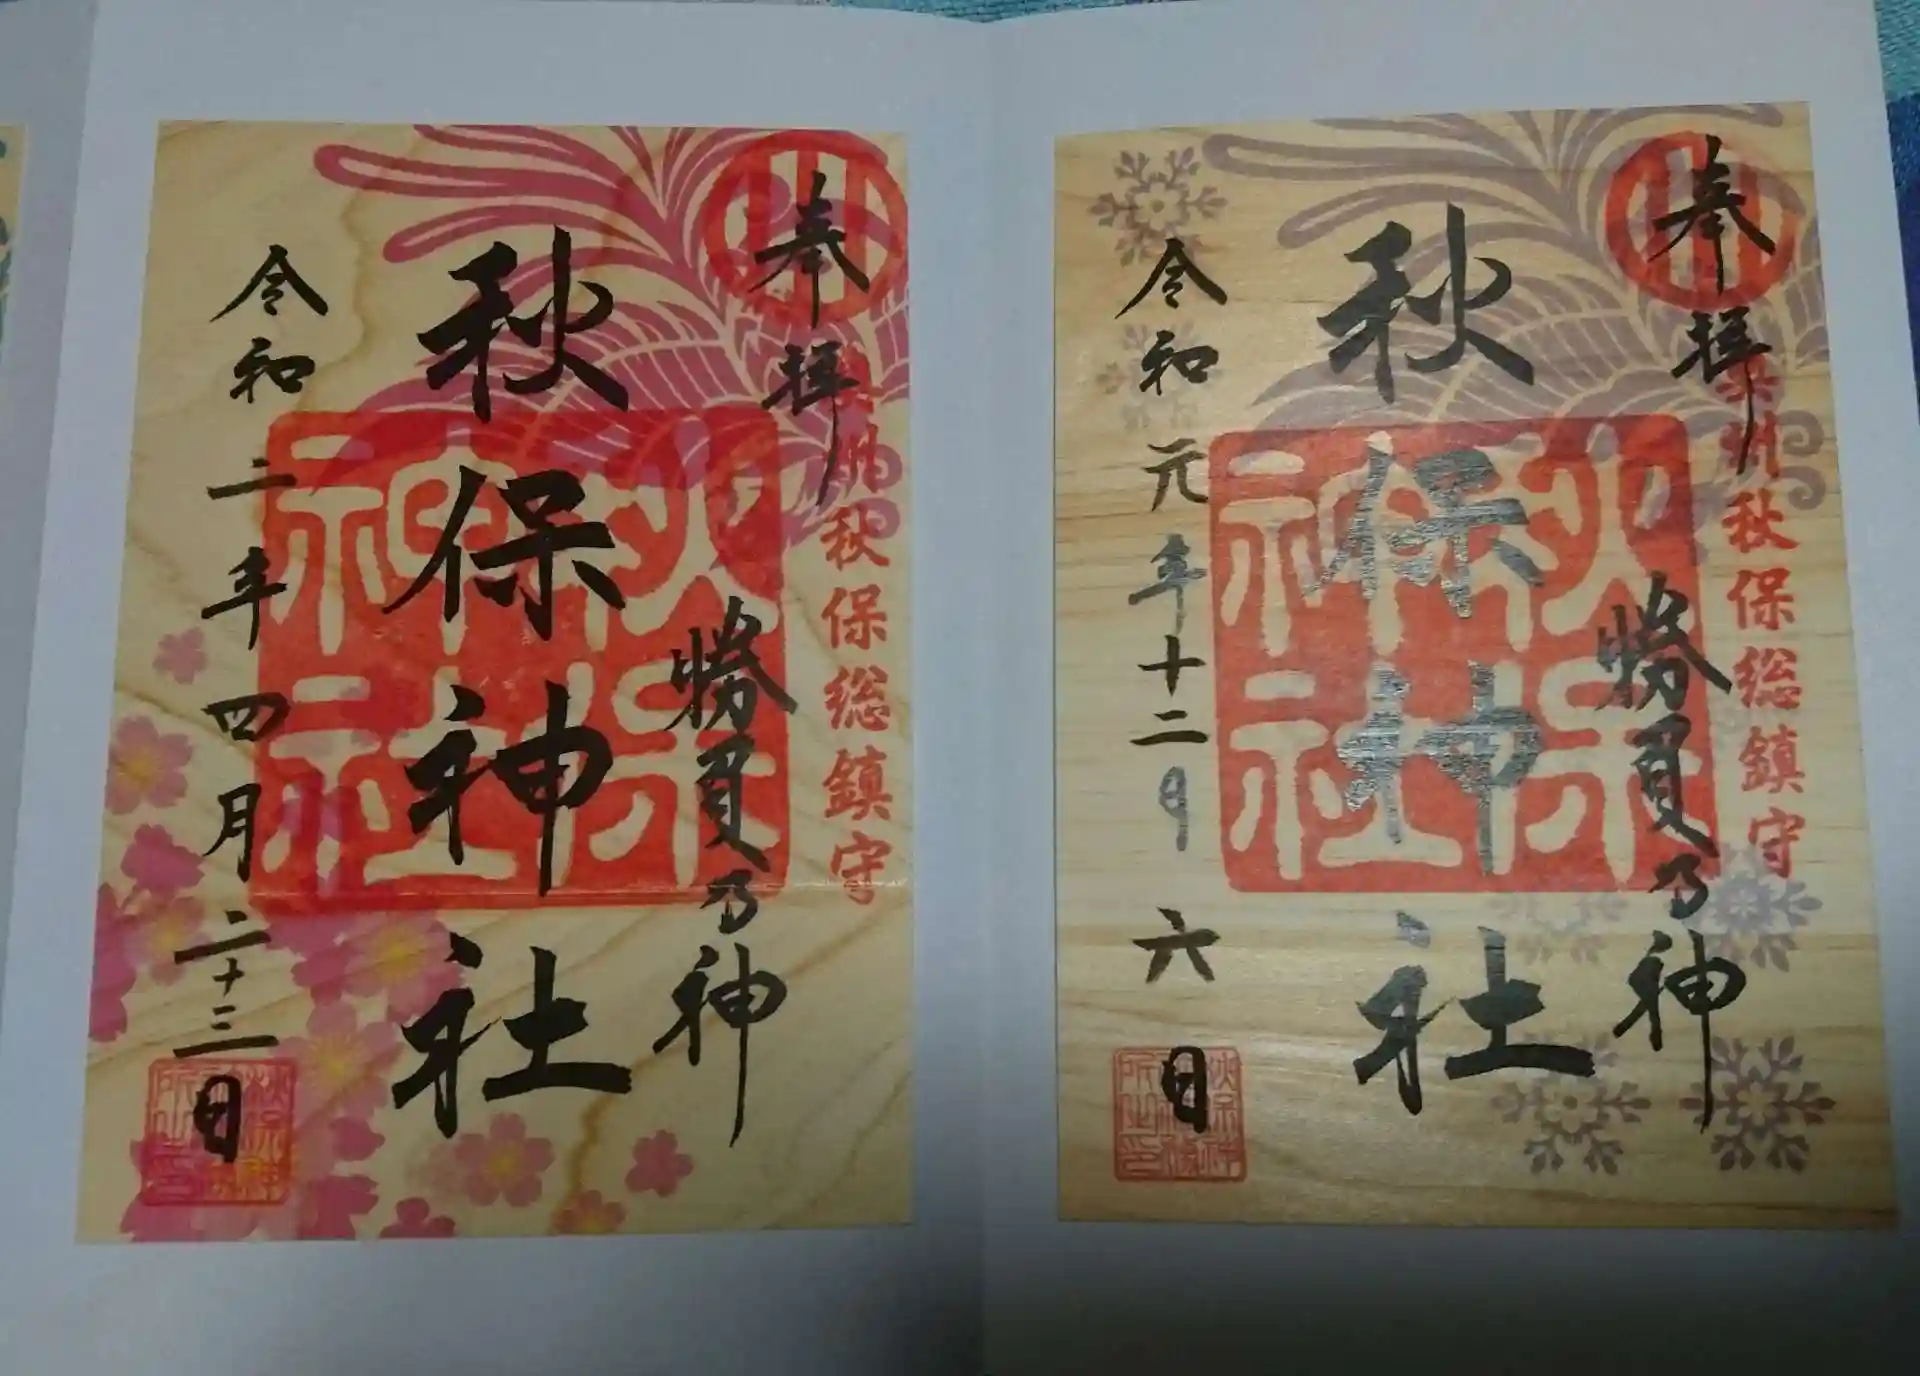 奉拝
奥州秋保総鎮守
勝負乃神
秋保神社
秋保神社
令和元年十二月六日
奉拝
奥州秋保総鎮守
勝負乃神
秋保神社
秋保神社
令和二年四月二十三日